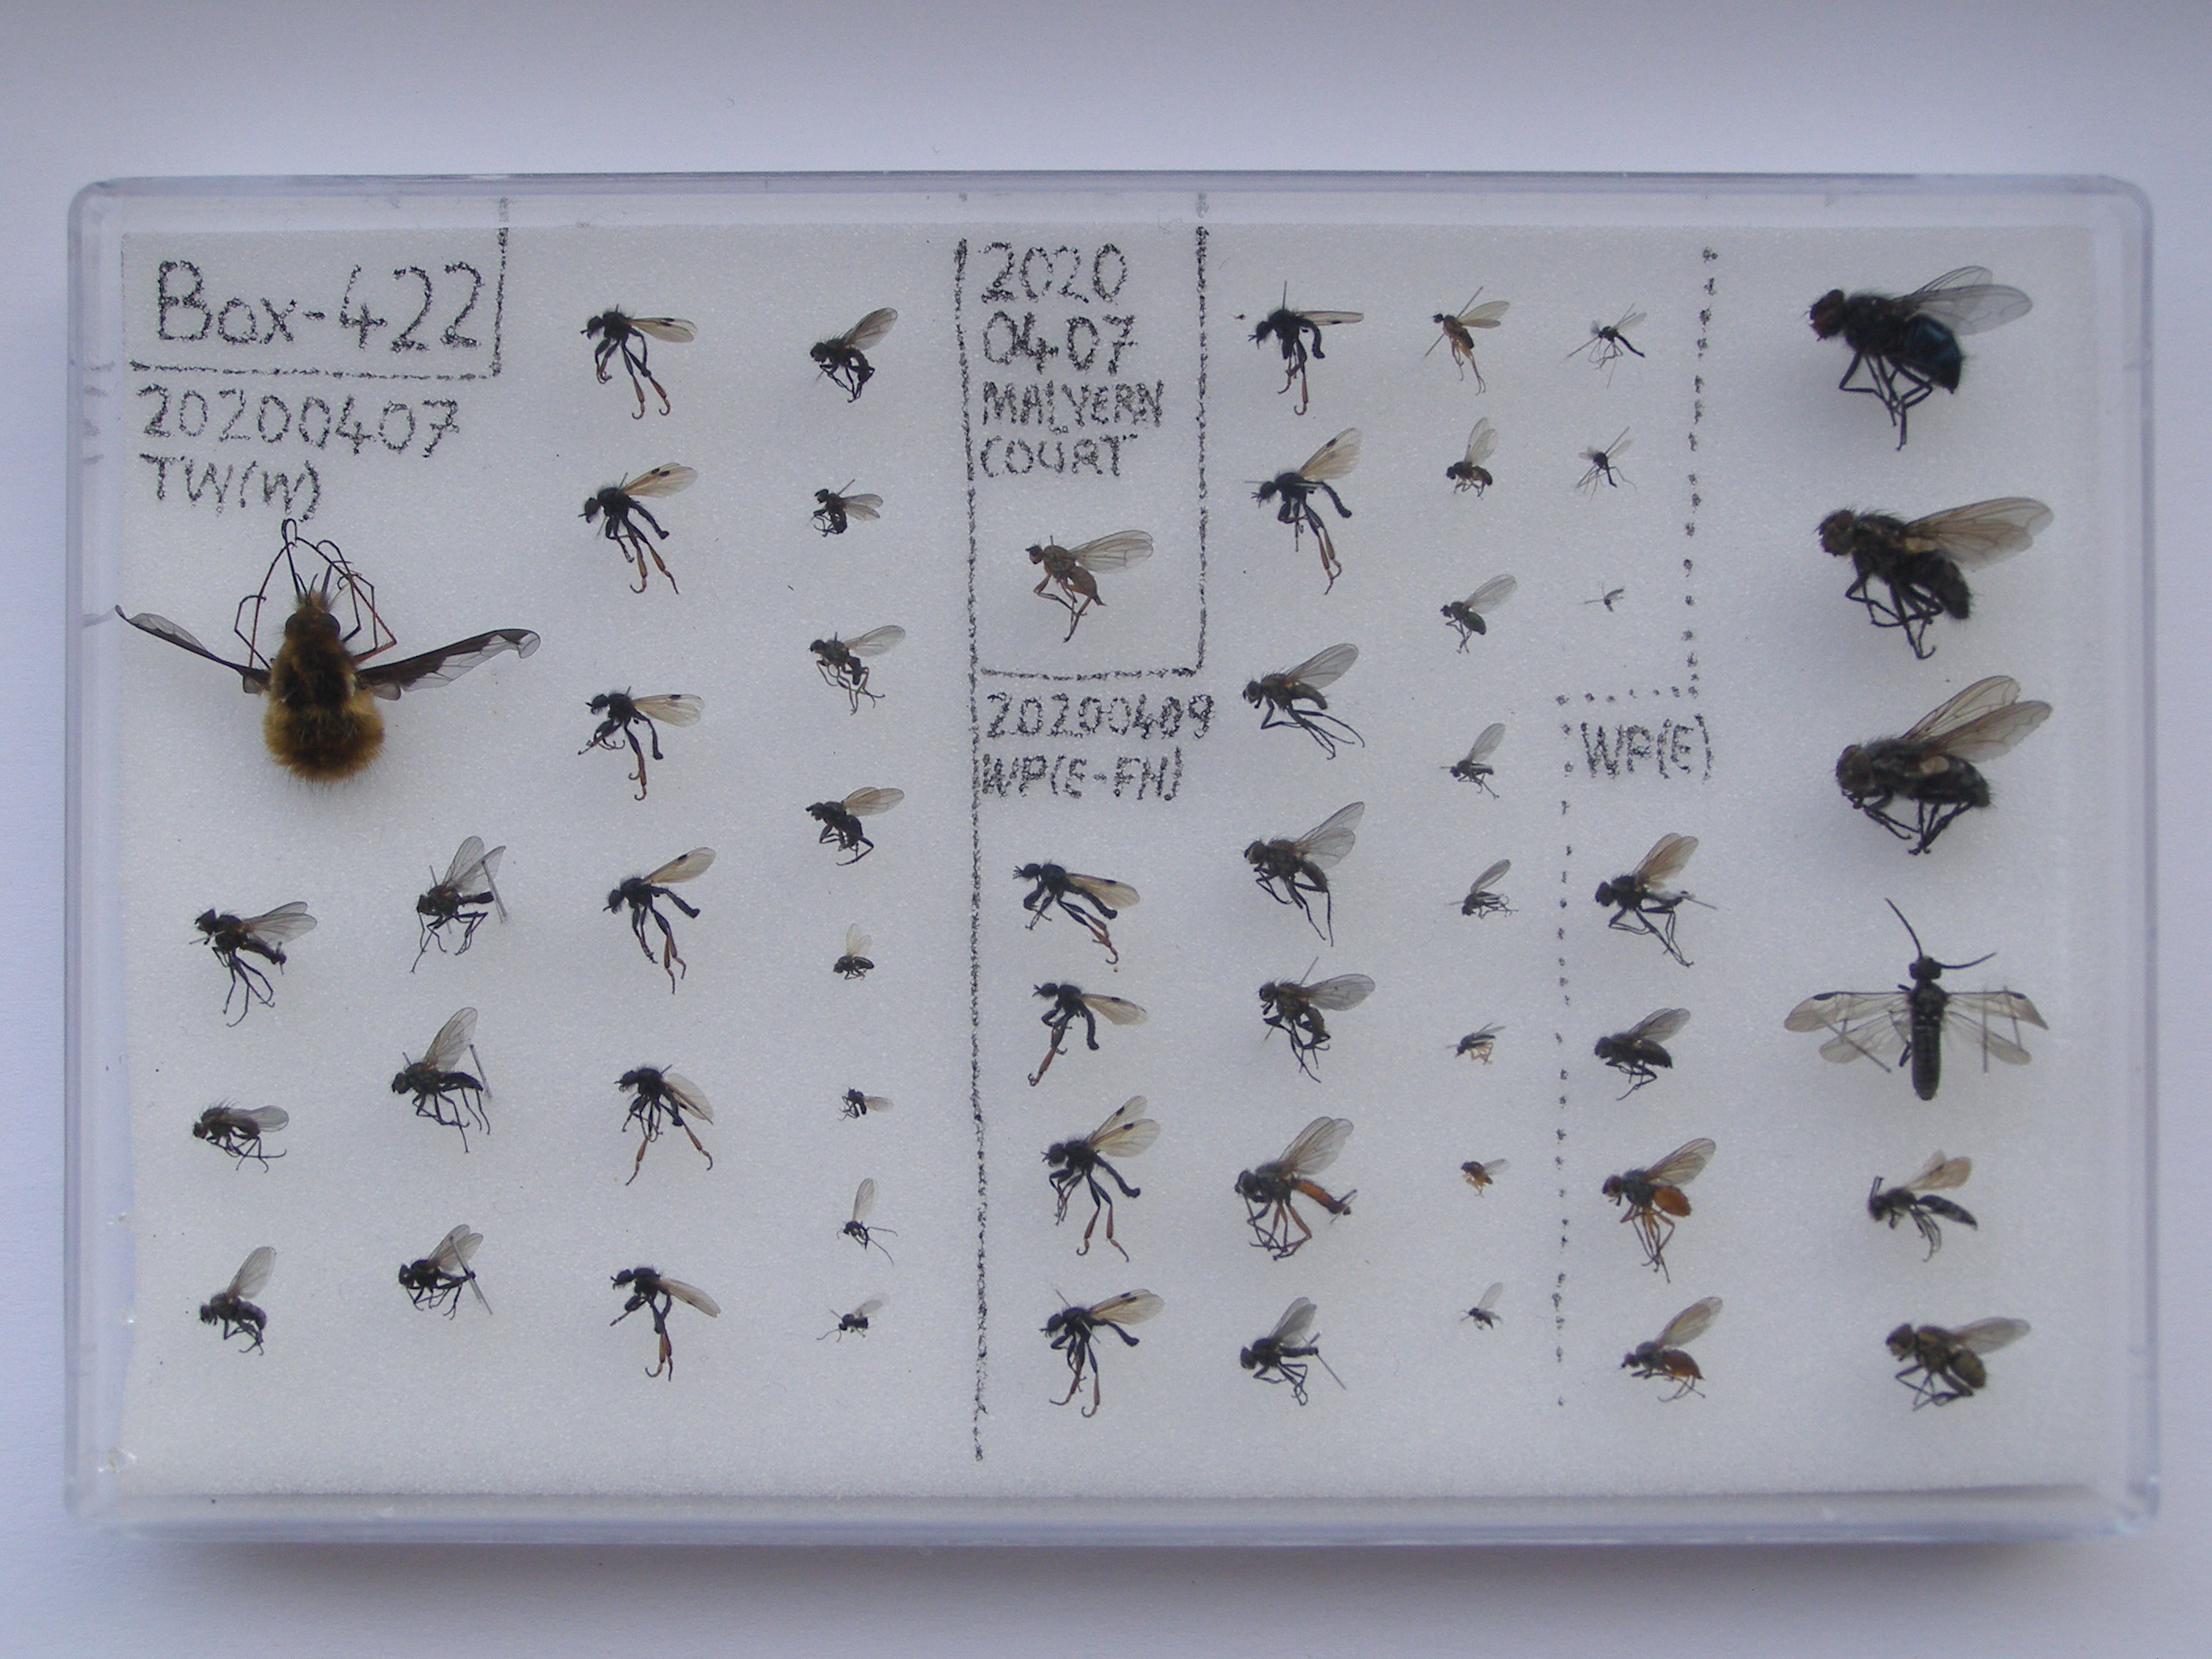 Box-422
20200407
TW(W)
2020
0407
MALVERN
COURT
20200409
WP(E-FH)
WP(E)